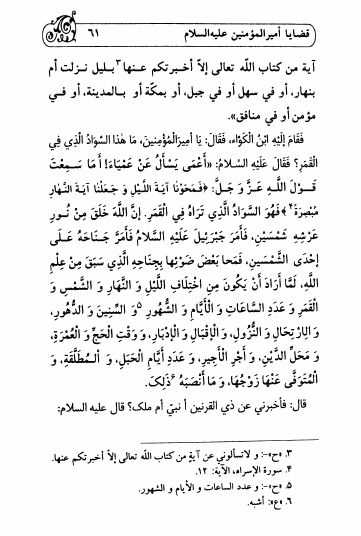 قضايا أمير المؤمنين عليه السلام ٦١
آية من كتاب الله تعالى إلاّ أخبرتكم عنها٣ بليل نزلت أم
بنهار، أو في سهل أو في جبل، أو بمكّة أو بالمدينة، أو في
مؤمن أو في منافق».
فَقَامَ إِلَيْهِ ابْنُ الْكَوَّاء، فَقَالَ: يَا أَمِيرَ الْمُؤْمِنِينَ، مَا هٰذَا السَّوَادُ الَّذِي فِي
الْقَمَرِ؟ فَقَالَ عَلَيْهِ السَّلَامُ: «أَعْمَى يَسْأَلُ عَنْ عَمْيَاءَ! أَ مَا سَمِعْتَ
قَوْلَ اللَّهِ عَزَّ وَ جَلَّ: ﴿فَمَحَوْنَا آيَةَ اللَّيْلِ وَ جَعَلْنَا آيَةَ النَّهَارِ
مُبْصِرَةً﴾٤ فَهُوَ السَّوَادُ الَّذِي تَرَاهُ فِي الْقَمَرِ. إِنَّ اللَّهَ خَلَقَ مِنْ نُورِ
عَرْشِهِ شَمْسَيْنِ، فَأَمَرَ جَبْرَئِيلَ عَلَيْهِ السَّلَامُ فَأَمَرَّ جَنَاحَهُ عَلَى
إِحْدَى الشَّمْسَيْنِ، فَمَحَا بَعْضَ ضَوْئِهَا بِجَنَاحِهِ الَّذِي سَبَقَ مِنْ عِلْمِ
اللَّهِ، لَمَّا أَرَادَ أَنْ يَكُونَ مِنِ اخْتِلَافِ اللَّيْلِ وَ النَّهَارِ وَ الشَّمْسِ وَ
الْقَمَرِ وَ عَدَدِ السَّاعَاتِ وَ الْأَيَّامِ وَ الشُّهُورِ ٥و السِّنِينَ وَ الدُّهُورِ،
وَ الاِرْتِحَالِ وَ النُّزُولِ، وَ الْإِقْبَالِ وَ الْإِدْبَارِ، وَ وَقْتِ الْحَجِّ وَ الْعُمْرَةِ،
وَ مَحَلِّ الدَّيْنِ، وَ أَجْرِ الْأَجِيرِ، وَ عَدَدِ أَيَّامِ الْحَبَلِ، وَ الْمُطَلَّقَةِ، وَ
الْمُتَوَفَّى عَنْهَا زَوْجُهَا، وَ مَا أَشْبَهَ٦ ذَلِكَ.
قال: فأخبرني عن ذي القرنين أ نبيّ أم ملك؟ قال عليه السلام:
٣. «ح»-: و لاتسألوني عن آية من كتاب الله تعالى إلاّ أخبرتكم عنها.
٤. سورة الإسراء، الآية: ١٢.
٥. «ح»-: و عدد الساعات و الأيام و الشهور.
٦. «ع»: أشبه.